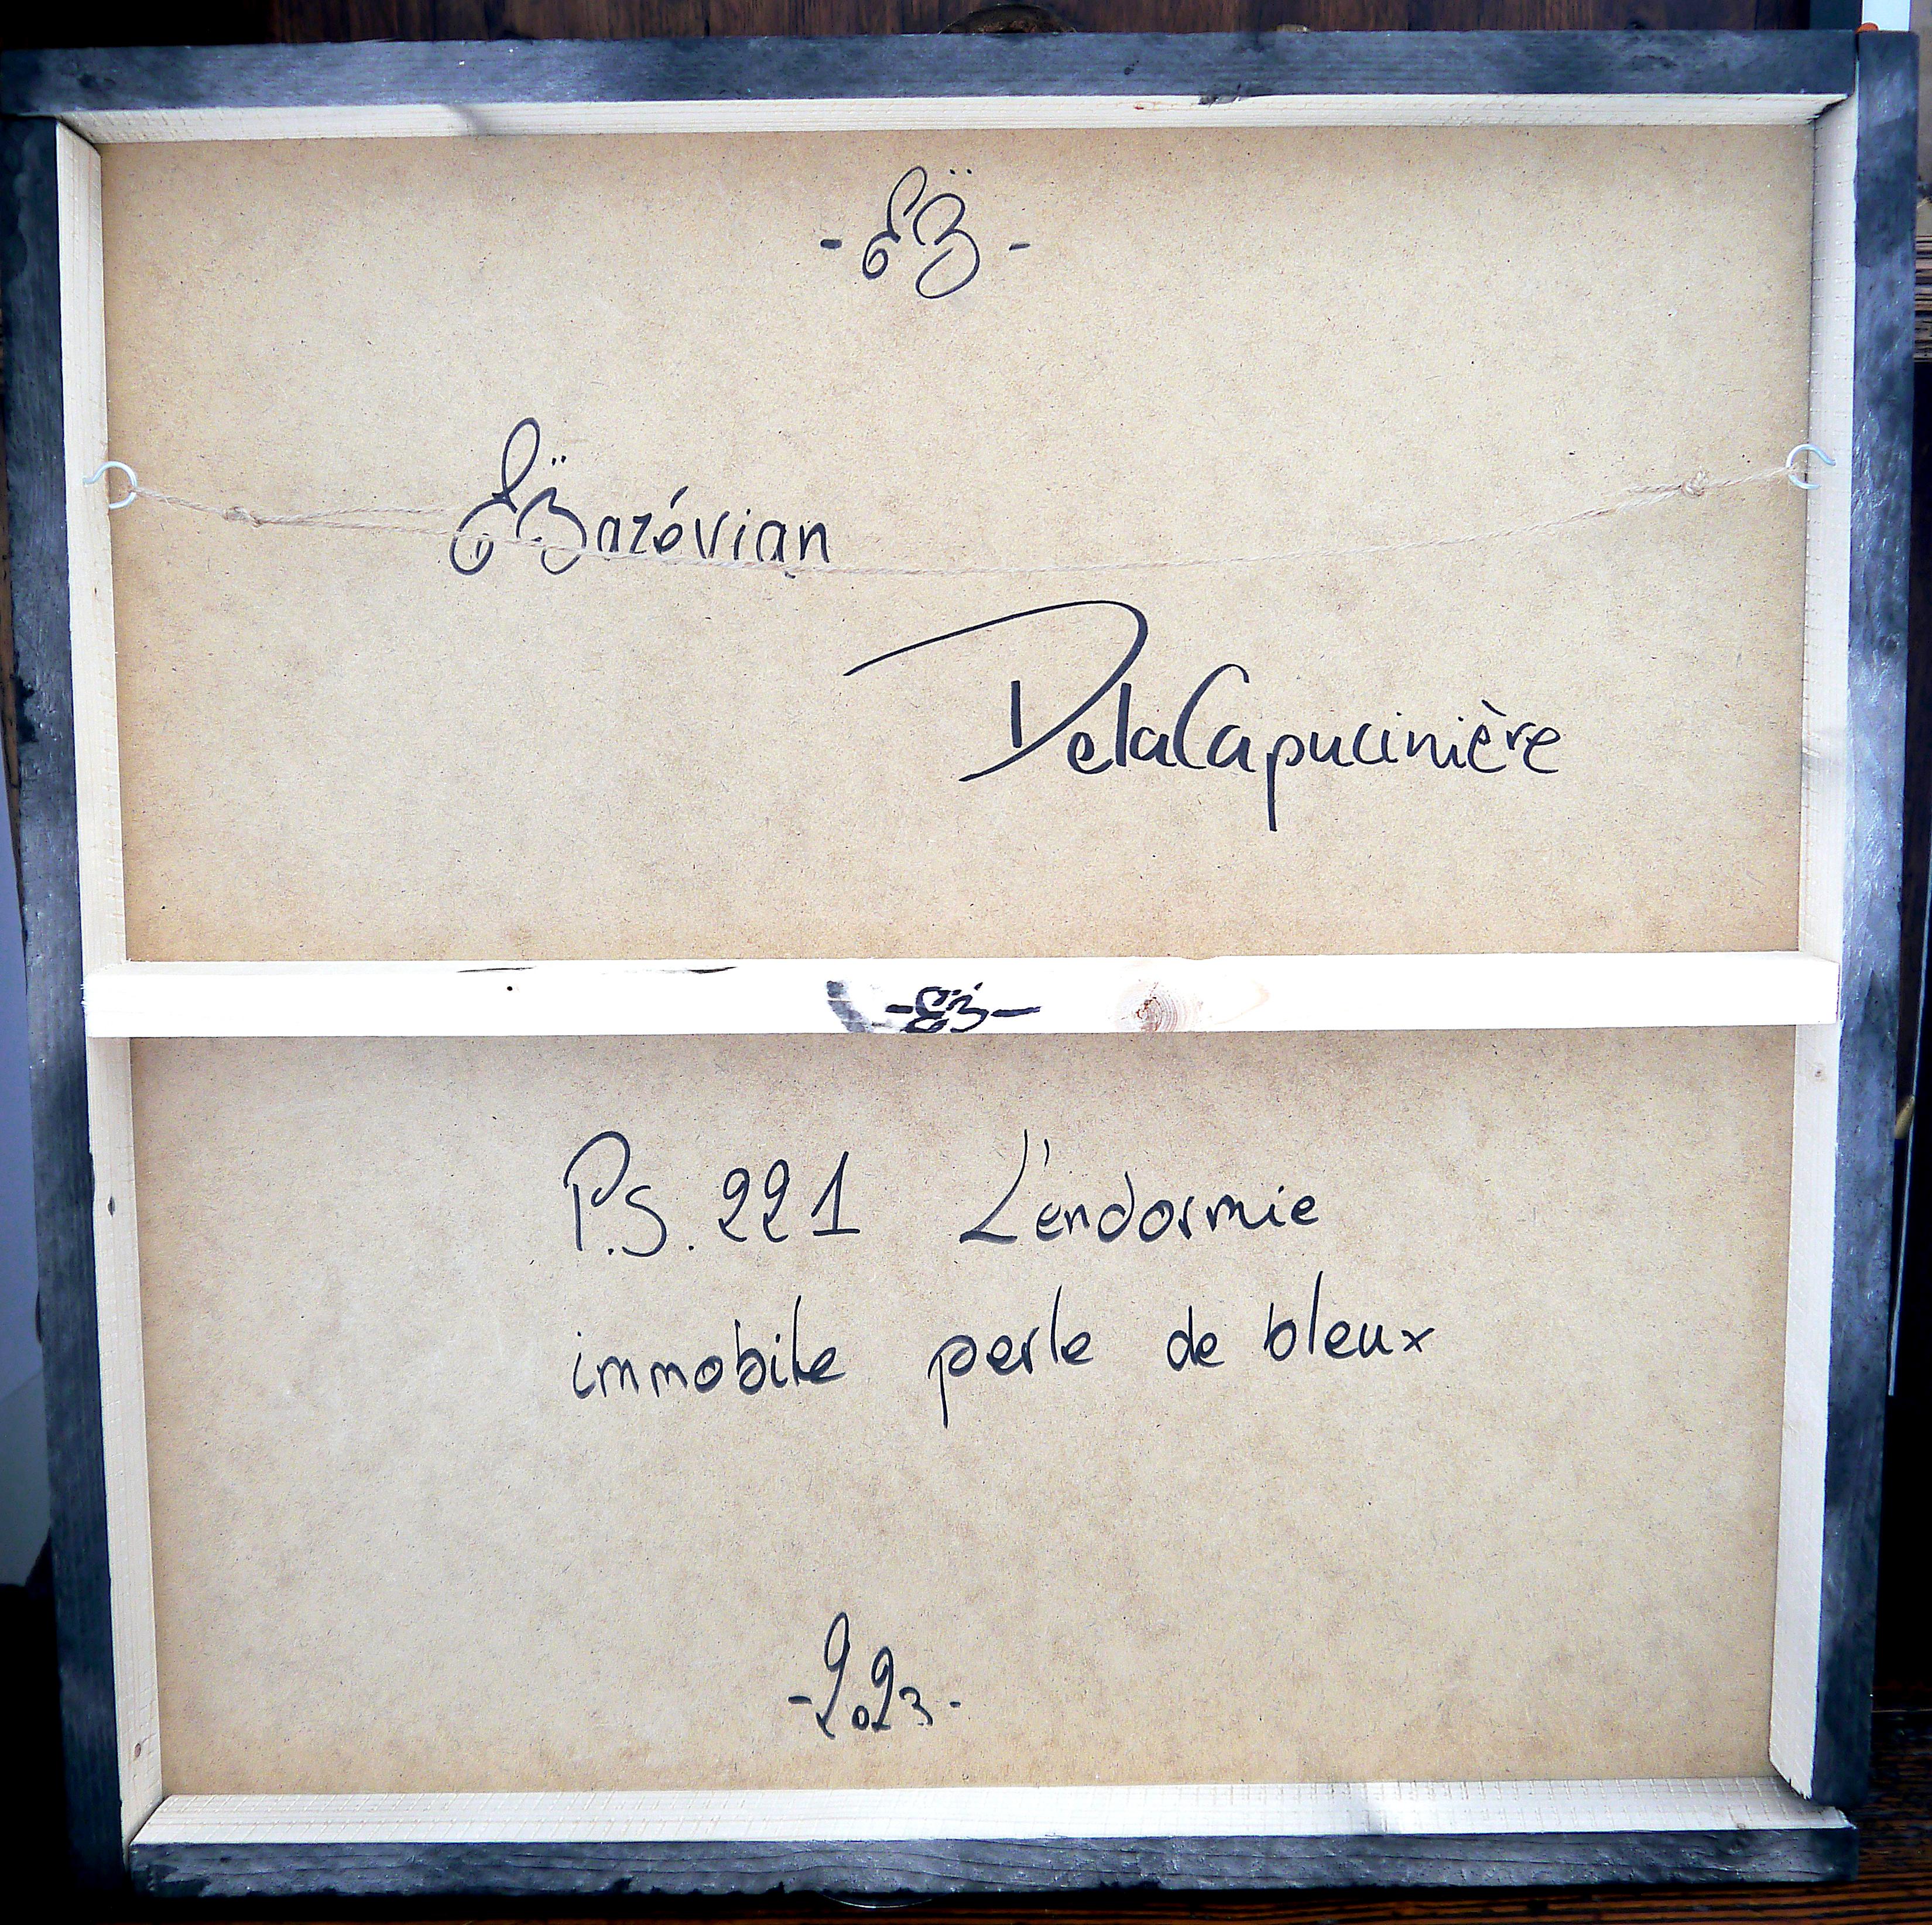 -EB̈-
EB̈arévian
DelaCapucinière
-EB̈-
P.S. 221 L'endormie
immobile perle de bleux
-2023-